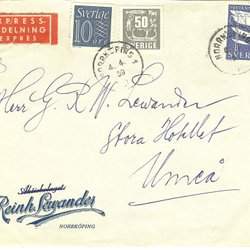 EXPRESS
DELNING
EXPRÈS
Sverige
10
ÖRE
50
SVERIGE
NORRKÖPING 1
4. 4.
Herr G. K. W. Lewander
Stora Hotellet
Umeå
Aktiebolaget
Reinh. Lewander
NORRKÖPING